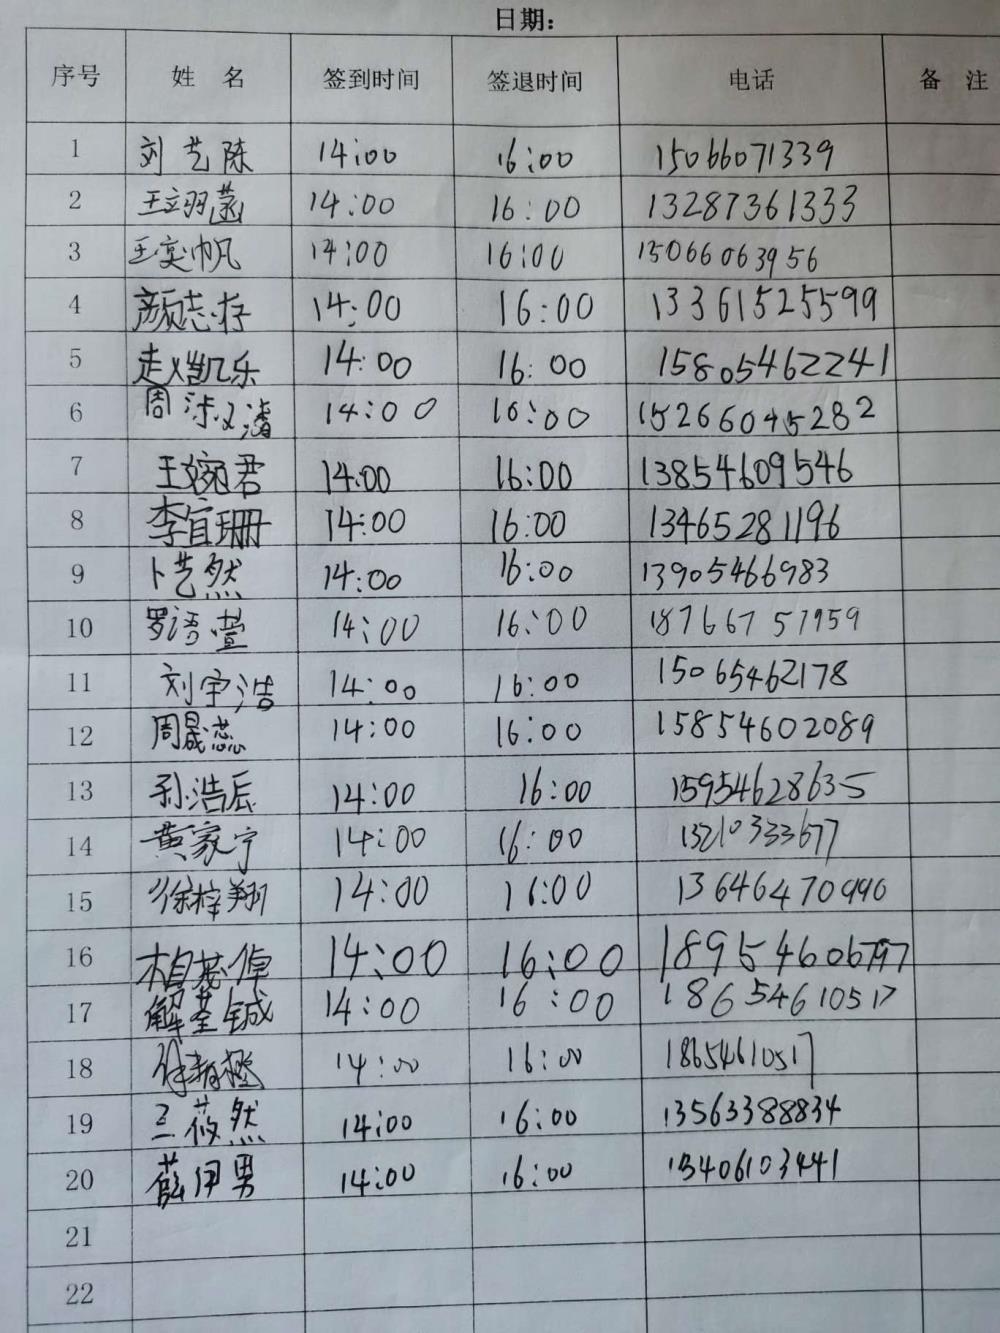 日期：
序号 姓 名 签到时间 签退时间 电话 备 注
1 刘艺陈 14:00 16:00 15066071339
2 王翊菡 14:00 16:00 13287361333
3 王奕帆 14:00 16:00 15066063956
4 颜志存 14:00 16:00 13361525599
5 赵凯乐 14:00 16:00 15805462241
6 周 14:00 16:00 15266045282
7 王婉君 14:00 16:00 13854609546
8 李宜珊 14:00 16:00 13465281196
9 卜艺然 14:00 16:00 13905466983
10 罗语萱 14:00 16:00 18766757959
11 刘宇浩 14:00 16:00 15065462178
12 周晟蕊 14:00 16:00 15854602089
13 孙浩辰 14:00 16:00 15954628635
14 黄家宁 14:00 16:00 13210333677
15 徐梓翔 14:00 16:00 13646470990
16 14:00 16:00 18954606797
17 解荃铖 14:00 16:00 18654610517
18 14:00 16:00 18654610517
19 王莜然 14:00 16:00 13563388834
20 薛伊男 14:00 16:00 15406103441
21
22